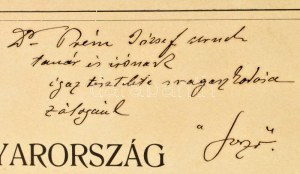 Dr. Prém József urnak
tanár és irónak
igaz tisztelete s ragaszkodása
zálogául
"Jozo".
YARORSZÁG